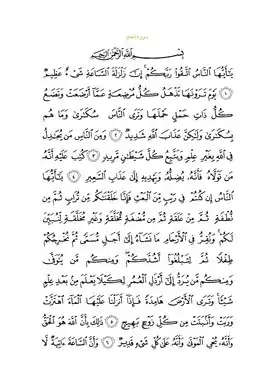 سورة الحج
بِسْمِ اللَّهِ الرَّحْمَٰنِ الرَّحِيمِ
يَٰٓأَيُّهَا النَّاسُ اتَّقُوا رَبَّكُمْ إِنَّ زَلْزَلَةَ السَّاعَةِ شَيْءٌ عَظِيمٌ
١ يَوْمَ تَرَوْنَهَا تَذْهَلُ كُلُّ مُرْضِعَةٍ عَمَّا أَرْضَعَتْ وَتَضَعُ
كُلُّ ذَاتِ حَمْلٍ حَمْلَهَا وَتَرَى النَّاسَ سُكَٰرَىٰ وَمَا هُم
بِسُكَٰرَىٰ وَلَٰكِنَّ عَذَابَ اللَّهِ شَدِيدٌ ٢ وَمِنَ النَّاسِ مَن يُجَٰدِلُ
فِي اللَّهِ بِغَيْرِ عِلْمٍ وَيَتَّبِعُ كُلَّ شَيْطَٰنٍ مَّرِيدٍ ٣ كُتِبَ عَلَيْهِ أَنَّهُ
مَن تَوَلَّاهُ فَأَنَّهُ يُضِلُّهُ وَيَهْدِيهِ إِلَىٰ عَذَابِ السَّعِيرِ ٤ يَٰٓأَيُّهَا
النَّاسُ إِن كُنتُمْ فِي رَيْبٍ مِّنَ الْبَعْثِ فَإِنَّا خَلَقْنَٰكُم مِّن تُرَابٍ ثُمَّ مِن
نُّطْفَةٍ ثُمَّ مِنْ عَلَقَةٍ ثُمَّ مِن مُّضْغَةٍ مُّخَلَّقَةٍ وَغَيْرِ مُخَلَّقَةٍ لِّنُبَيِّنَ
لَكُمْ وَنُقِرُّ فِي الْأَرْحَامِ مَا نَشَاءُ إِلَىٰ أَجَلٍ مُّسَمًّى ثُمَّ نُخْرِجُكُمْ
طِفْلًا ثُمَّ لِتَبْلُغُوا أَشُدَّكُمْ وَمِنكُم مَّن يُتَوَفَّىٰ
وَمِنكُم مَّن يُرَدُّ إِلَىٰ أَرْذَلِ الْعُمُرِ لِكَيْلَا يَعْلَمَ مِن بَعْدِ عِلْمٍ
شَيْئًا وَتَرَى الْأَرْضَ هَامِدَةً فَإِذَا أَنزَلْنَا عَلَيْهَا الْمَاءَ اهْتَزَّتْ
وَرَبَتْ وَأَنبَتَتْ مِن كُلِّ زَوْجٍ بَهِيجٍ ٥ ذَٰلِكَ بِأَنَّ اللَّهَ هُوَ الْحَقُّ
وَأَنَّهُ يُحْيِي الْمَوْتَىٰ وَأَنَّهُ عَلَىٰ كُلِّ شَيْءٍ قَدِيرٌ ٦ وَأَنَّ السَّاعَةَ ءَاتِيَةٌ لَّا